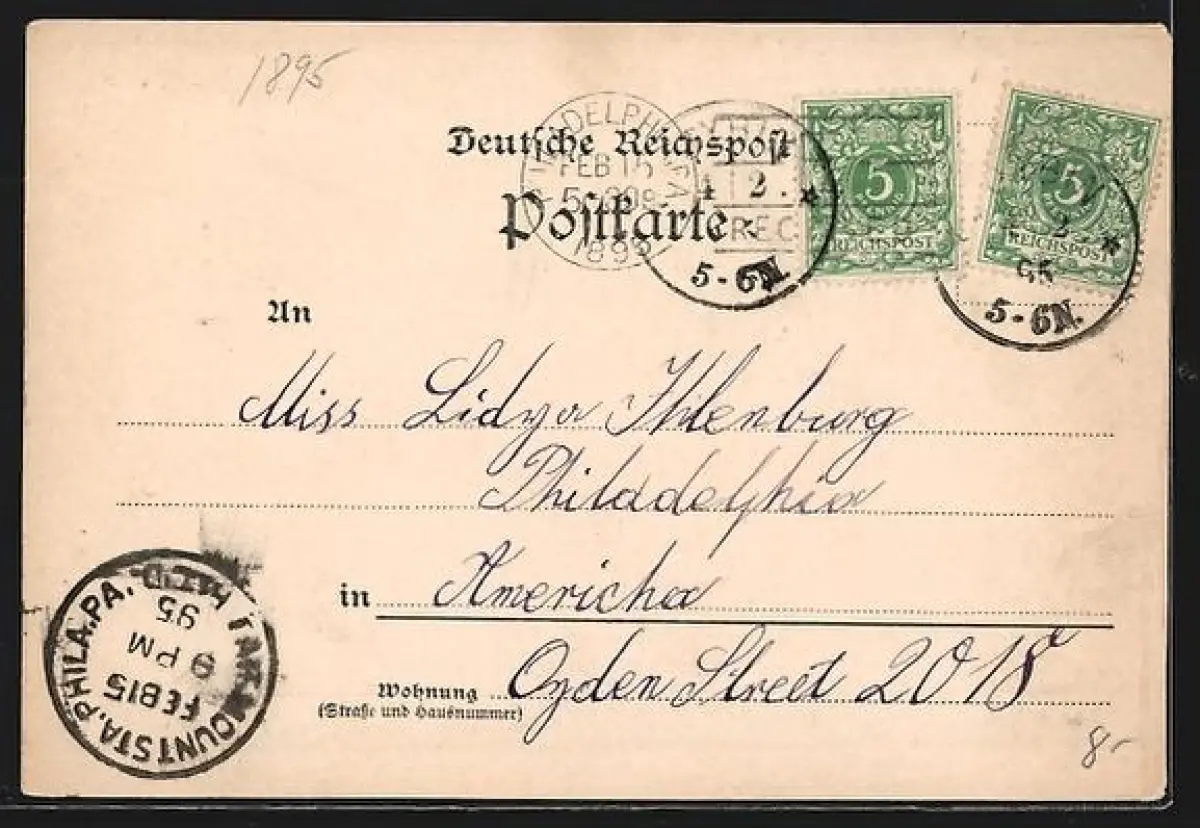 1895
Deutsche Reichspost
Postkarte.
PHILADELPHIA
FEB 15
1895
REC
4 2. *
5-6N.
5
REICHSPOST
5
REICHSPOST
2 *
95
5-6N.
An
Miss Lidya Ihlenburg
Philadelphia
in Americha
Wohnung Ogden Street 2018
(Straße und Hausnummer)
FAIRMOUNT STA. PHILA. PA.
FEB 15
9 PM
95
8-